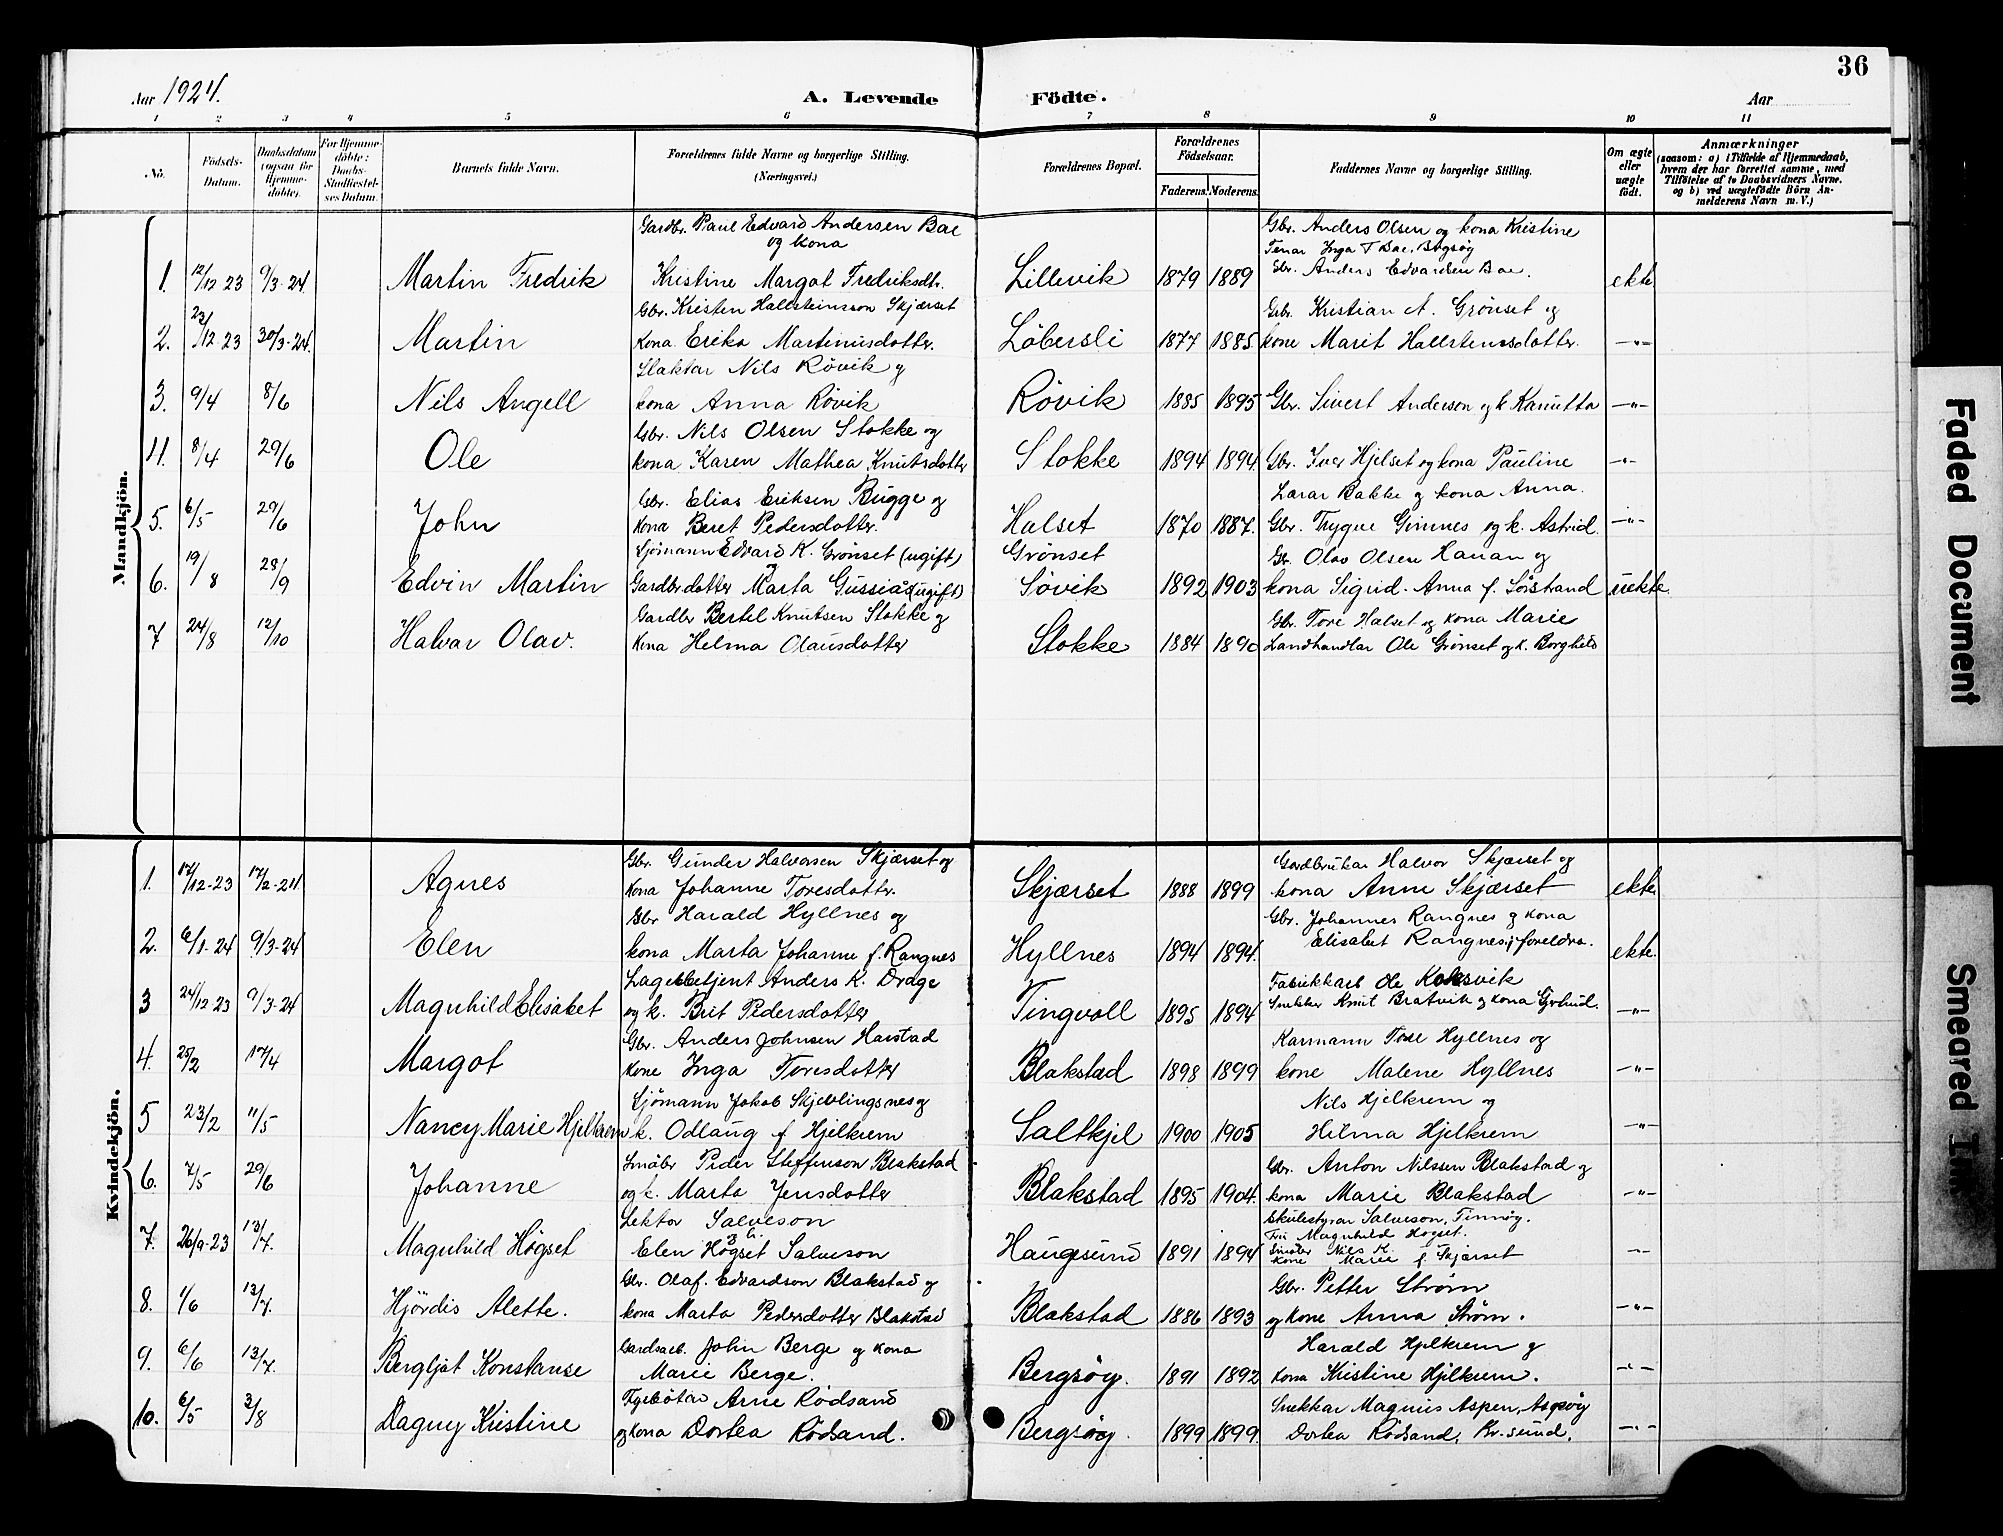 36
Aar 1924. A. Levende Födte. Aar
1 2 3 4 5 6 7 8 9 10 11
No. Födsels-Datum. Daabsdatum (ogsaa for Hjemme-döbte). For Hjemme-döbte: Daabs-Stadfæstel-ses Datum. Barnets fulde Navn. Forældrenes fulde Navne og borgerlige Stilling. (Næringsvei.) Forældrenes Bopæl. Forældrenes Födselsaar. Faderens. Moderens. Faddernes Navne og borgerlige Stilling. Om ægte eller uægte födt. Anmærkninger (saasom: a) i Tilfælde af Hjemmedaab, hvem der har forrettet samme, med Tilföielse af to Daabsvidners Navne, og b) ved uægtefödte Börn An-melderens Navn m. V.)
Mandkjön.
Gardbr. Paul Edvard Andersen Bae og kona Gbr. Anders Olsen og kona Kristine
Inga T Bae, Bergsøy
1. 12/12 23 9/3-24. Martin Fredrik Kristine Margot Fredriksdtr. Lillevik 1879 1889 Gbr. Anders Edvardsen Bae. ekte
Gbr. Kristen Hallsteinsson Skjærset Gbr. Kristian A. Grönset og
2. 23/12 23 30/3-24. Martin kona Erika Martinusdotter. Löbersli 1877 1885 kone Marit Hallstensdotter. -"-
Slaktar Nils Rövik og
3. 9/4 8/6 Nils Angell kona Anna Rövik Rövik 1885 1895 Gbr. Sivert Anderson og k Kanutta -"-
Gbr. Nils Olsen Stokke og
4. 8/4 29/6 Ole kona Karen Mathea Knutsdotter Stokke 1894 1894 Gbr. Iver Hjelset og kona Pauline -"-
Gbr. Elias Eriksen Bugge og Lærar Bakke og kona Anna.
5. 6/5 29/6 John kona Beret Pedersdotter. Halset 1870 1887. Gbr. Trygve Gimnes og k. Astrid -"-
Sjömann Edvard K. Grönset (ugift) og Grönset Gbr. Olav Olsen Hanan og
6. 19/8 28/9 Edvin Martin Gardbrdotter Marta Gussiås (ugift) Sövik 1892 1903 kona Sigrid. Anna f. Sörstrand uekte.
Gardbr Bertel Knutsen Stokke og Gbr. Tore Halset og kona Marie
7 24/8 12/10 Halvar Olav. Kona Helma Olausdotter Stokke 1884 1890 Landhandlar Ole Grönset og k. Borghild
Kvindekjön.
Gbr. Gunder Halvorsen Skjærset og Gardbrukar Halvor Skjærset og
1. 17/12-23 17/2-24. Agnes Kona Johanne Toresdotter. Skjærset 1888 1899 kona Anne Skjærset ekte
Gbr Harald Hyllnes og Gbr. Johannes Rangnes og kona
2. 6/1-24 9/3-24 Elen kona Marta Johanne f. Rangnes Hyllnes 1894 1894. Elisabet Rangnes, foreldra. ekte.
Anders K. Drage Fabrikkarb Ole Koksvik
3 24/12-23 9/3-24 Magnhild Elisabet og k. Brit Pedersdotter Tingvoll 1895 1894 Snekker Knut Bratvik og kona Gjertrud. -"-
Gbr. Anders Johnsen Harstad Karmann Tore Hyllnes og
4. 25/2 17/4 Margot Kone Inga Toresdotter Blakstad 1898 1899 kone Malene Hyllnes -"-
Sjömann Jakob Skjevlingsnes og Nils Hjelkrem og
5 23/2 11/5 Nancy Marie Hjelkrem k. Odlaug f Hjelkrem Saltkjel 1900 1905 Hilma Hjelkrem -"-
Småbr Peder Steffenson Blakstad Gbr. Anton Nilssen Blakstad og
6. 7/5 29/6 Johanne og k. Marta Jensdotter Blakstad 1895 1904. kona Marie Blakstad -"-
Lektor Salveson Skulestyrar Salveson,
Frk Magnhild Högset.
7. 26/9-23 13/7. Magnhild Högset Elen Högset Salveson Haugesund 1891 1894 Småbr Nils K. kone Marie f Skjærset -"-
Gbr. Olaf. Edvardson Blakstad og Gbr. Petter Ström
8. 1/6 13/7. Hjördis Alette. kona Marta Pedersdotter Blakstad Blakstad 1886 1893 og kone Anna Ström. -"-
Gardsarb. John Berge og kona Harald Hjelkrem og
9. 6/6 13/7. Bergljot Konstanse Marie Berge. Bergsöy. 1891 1892 kona Kristine Hjelkrem. -"-
Fyrbötar Arne Rödsand Snekkar Magnus Aspen, Aspöy
10. 6/5 3/8 Dagny Kristine og kona Dortea Rödsand. Bergsöy. 1899 1899. Dortea Rödsand, Kr.sund. -"-
Faded Document
Smeared Ink